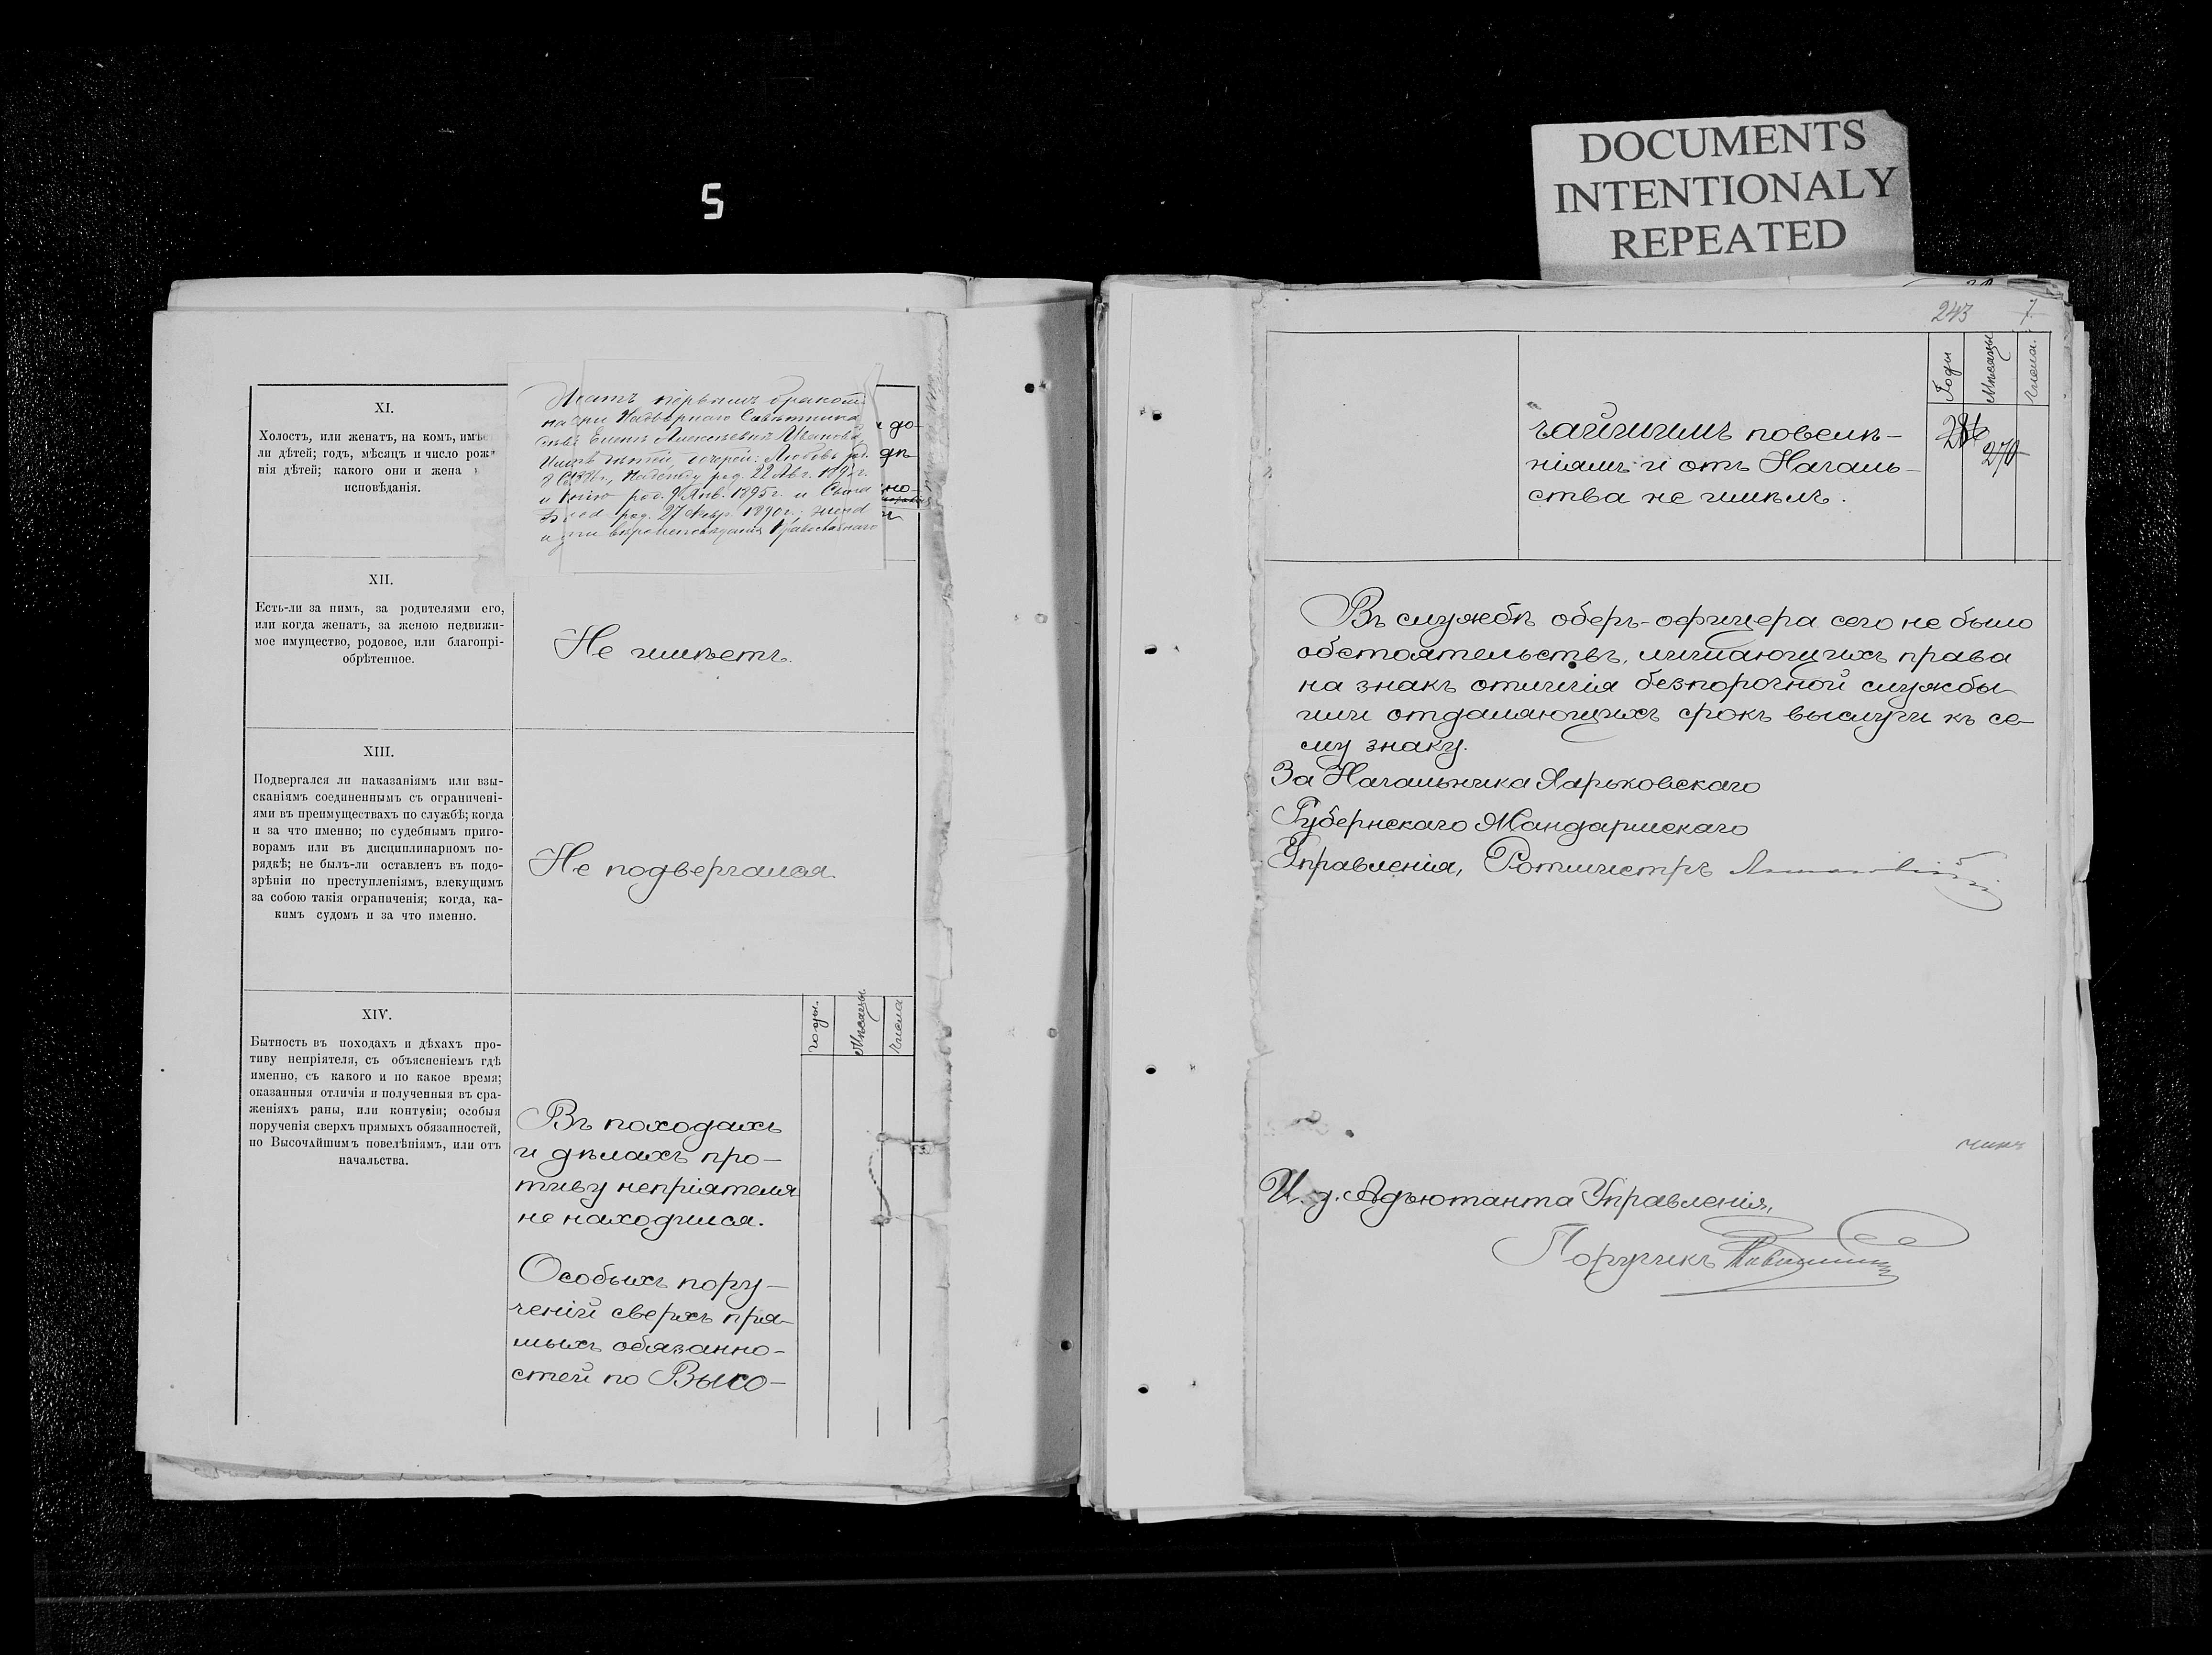 5
DOCUMENTS
INTENTIONALY
REPEATED
XI.
Холостъ, или женатъ, на комъ, имѣе
ли дѣтей; годъ, мѣсяцъ и число рож
нія дѣтей; какого они и жена
исповѣданія.
Женатъ первымъ бракомъ
на дочери Надворнаго Совѣтника
Еленѣ Алексѣевнѣ Ивановой
Имѣетъ дѣтей дочерей: Любовь род.
Надежду род. 22 Авг. 1892 г.
и род. 9 Янв. 1895 г. и Сына
род. 27 1890 г.; жена
и дѣти вѣроисповѣданія Православнаго
до-
но-
XII.
Есть-ли за нимъ, за родителями его,
или когда женатъ, за женою недвижи-
мое имущество, родовое, или благопрі-
обрѣтенное.
Не имѣетъ.
XIII.
Подвергался ли наказаніямъ или взы-
сканіямъ соединеннымъ съ ограничені-
ями въ преимуществахъ по службѣ; когда
и за что именно; по судебнымъ приго-
ворамъ или въ дисциплинарномъ по-
рядкѣ; не былъ-ли оставленъ въ подо-
зрѣніи по преступленіямъ, влекущимъ
за собою такія ограниченія; когда, ка-
кимъ судомъ и за что именно.
Не подвергался.
XIV.
Бытность въ походахъ и дѣлахъ про-
тиву непріятеля, съ объясненіемъ гдѣ
именно, съ какого и по какое время;
оказанныя отличія и полученныя въ сра-
женіяхъ раны, или контузіи; особыя
порученія сверхъ прямыхъ обязанностей,
по Высочайшимъ повелѣніямъ, или отъ
начальства.
Годы.
Мѣсяцы.
Числа
Въ походахъ
и дѣлахъ про-
тиву непріятеля
не находился.
Особыхъ пору-
ченій сверхъ пря-
мыхъ обязанно-
стей по Высо-
243
7.
Годы
Мѣсяцы
Числа.
чайшимъ повелѣ-
ніямъ и отъ Началь-
ства не имѣлъ.
270
Въ службѣ оберъ-офицера сего не было
обстоятельствъ, лишающихъ права
на знакъ отличія безпорочной службы
или отдаляющихъ срокъ выслуги къ се-
му знаку.
За Начальника Харьковскаго
Губернскаго Жандармскаго
Управленія, Ротмистръ
И. д. Адъютанта Управленія,
Поручикъ